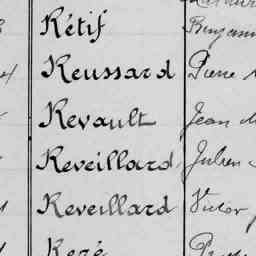 Rétif Benjamin
Reussard Pierre
Revault Jean
Reveillard Julien
Reveillard Victor